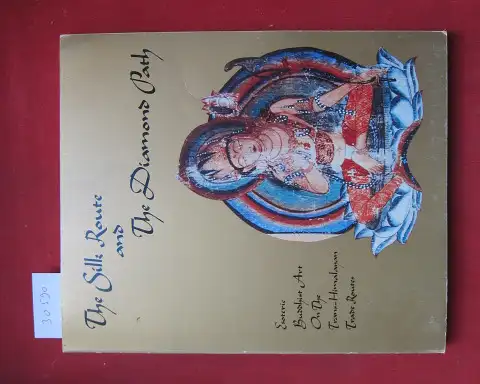 The Silk Route
and
The Diamond Path
Esoteric
Buddhist Art
On The
Trans-Himalayan
Trade Routes
30190